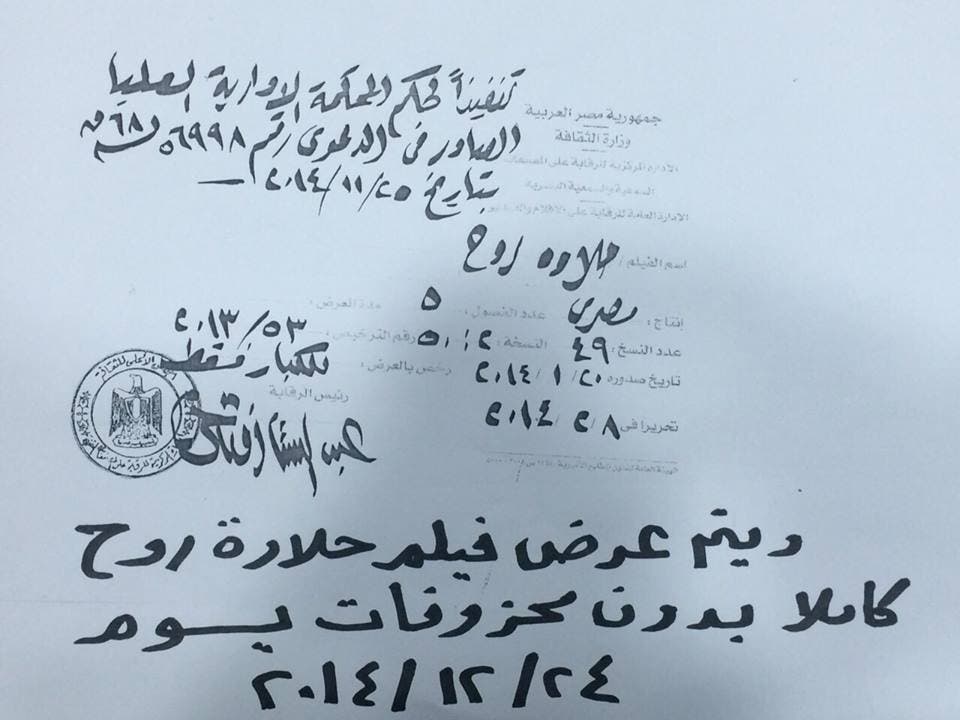 تنفيذاً لحكم المحكمة الإدارية العليا
الصادر فى الدعوى رقم ٥٦٩٩٨ لسنة ٦٨ ق
بتاريخ ٢٠١٤/١١/٢٥
جمهورية مصر العربية
وزارة الثقافة
الادارة المركزية للرقابة على المصنفات
السمعية والسمعية البصرية
الادارة العامة للرقابة على الافلام
اسم الفيلم / حلاوه روح
إنتاج: مصرى عدد الفصول: ٥ مدة العرض:
عدد النسخ: ٤٩ النسخة: رقم الترخيص: ٢٠١٣/٥٣
تاريخ صدوره ٢٠١٤/١/٢٠ رخص بالعرض: للكبار فقط
تحريرا فى ٢٠١٤/٢/٨ رئيس الرقابة
عبد الستار فتحى
ويتم عرض فيلم حلاوة روح
كاملا بدون محزوفات يوم
٢٠١٤/١٢/٢٤